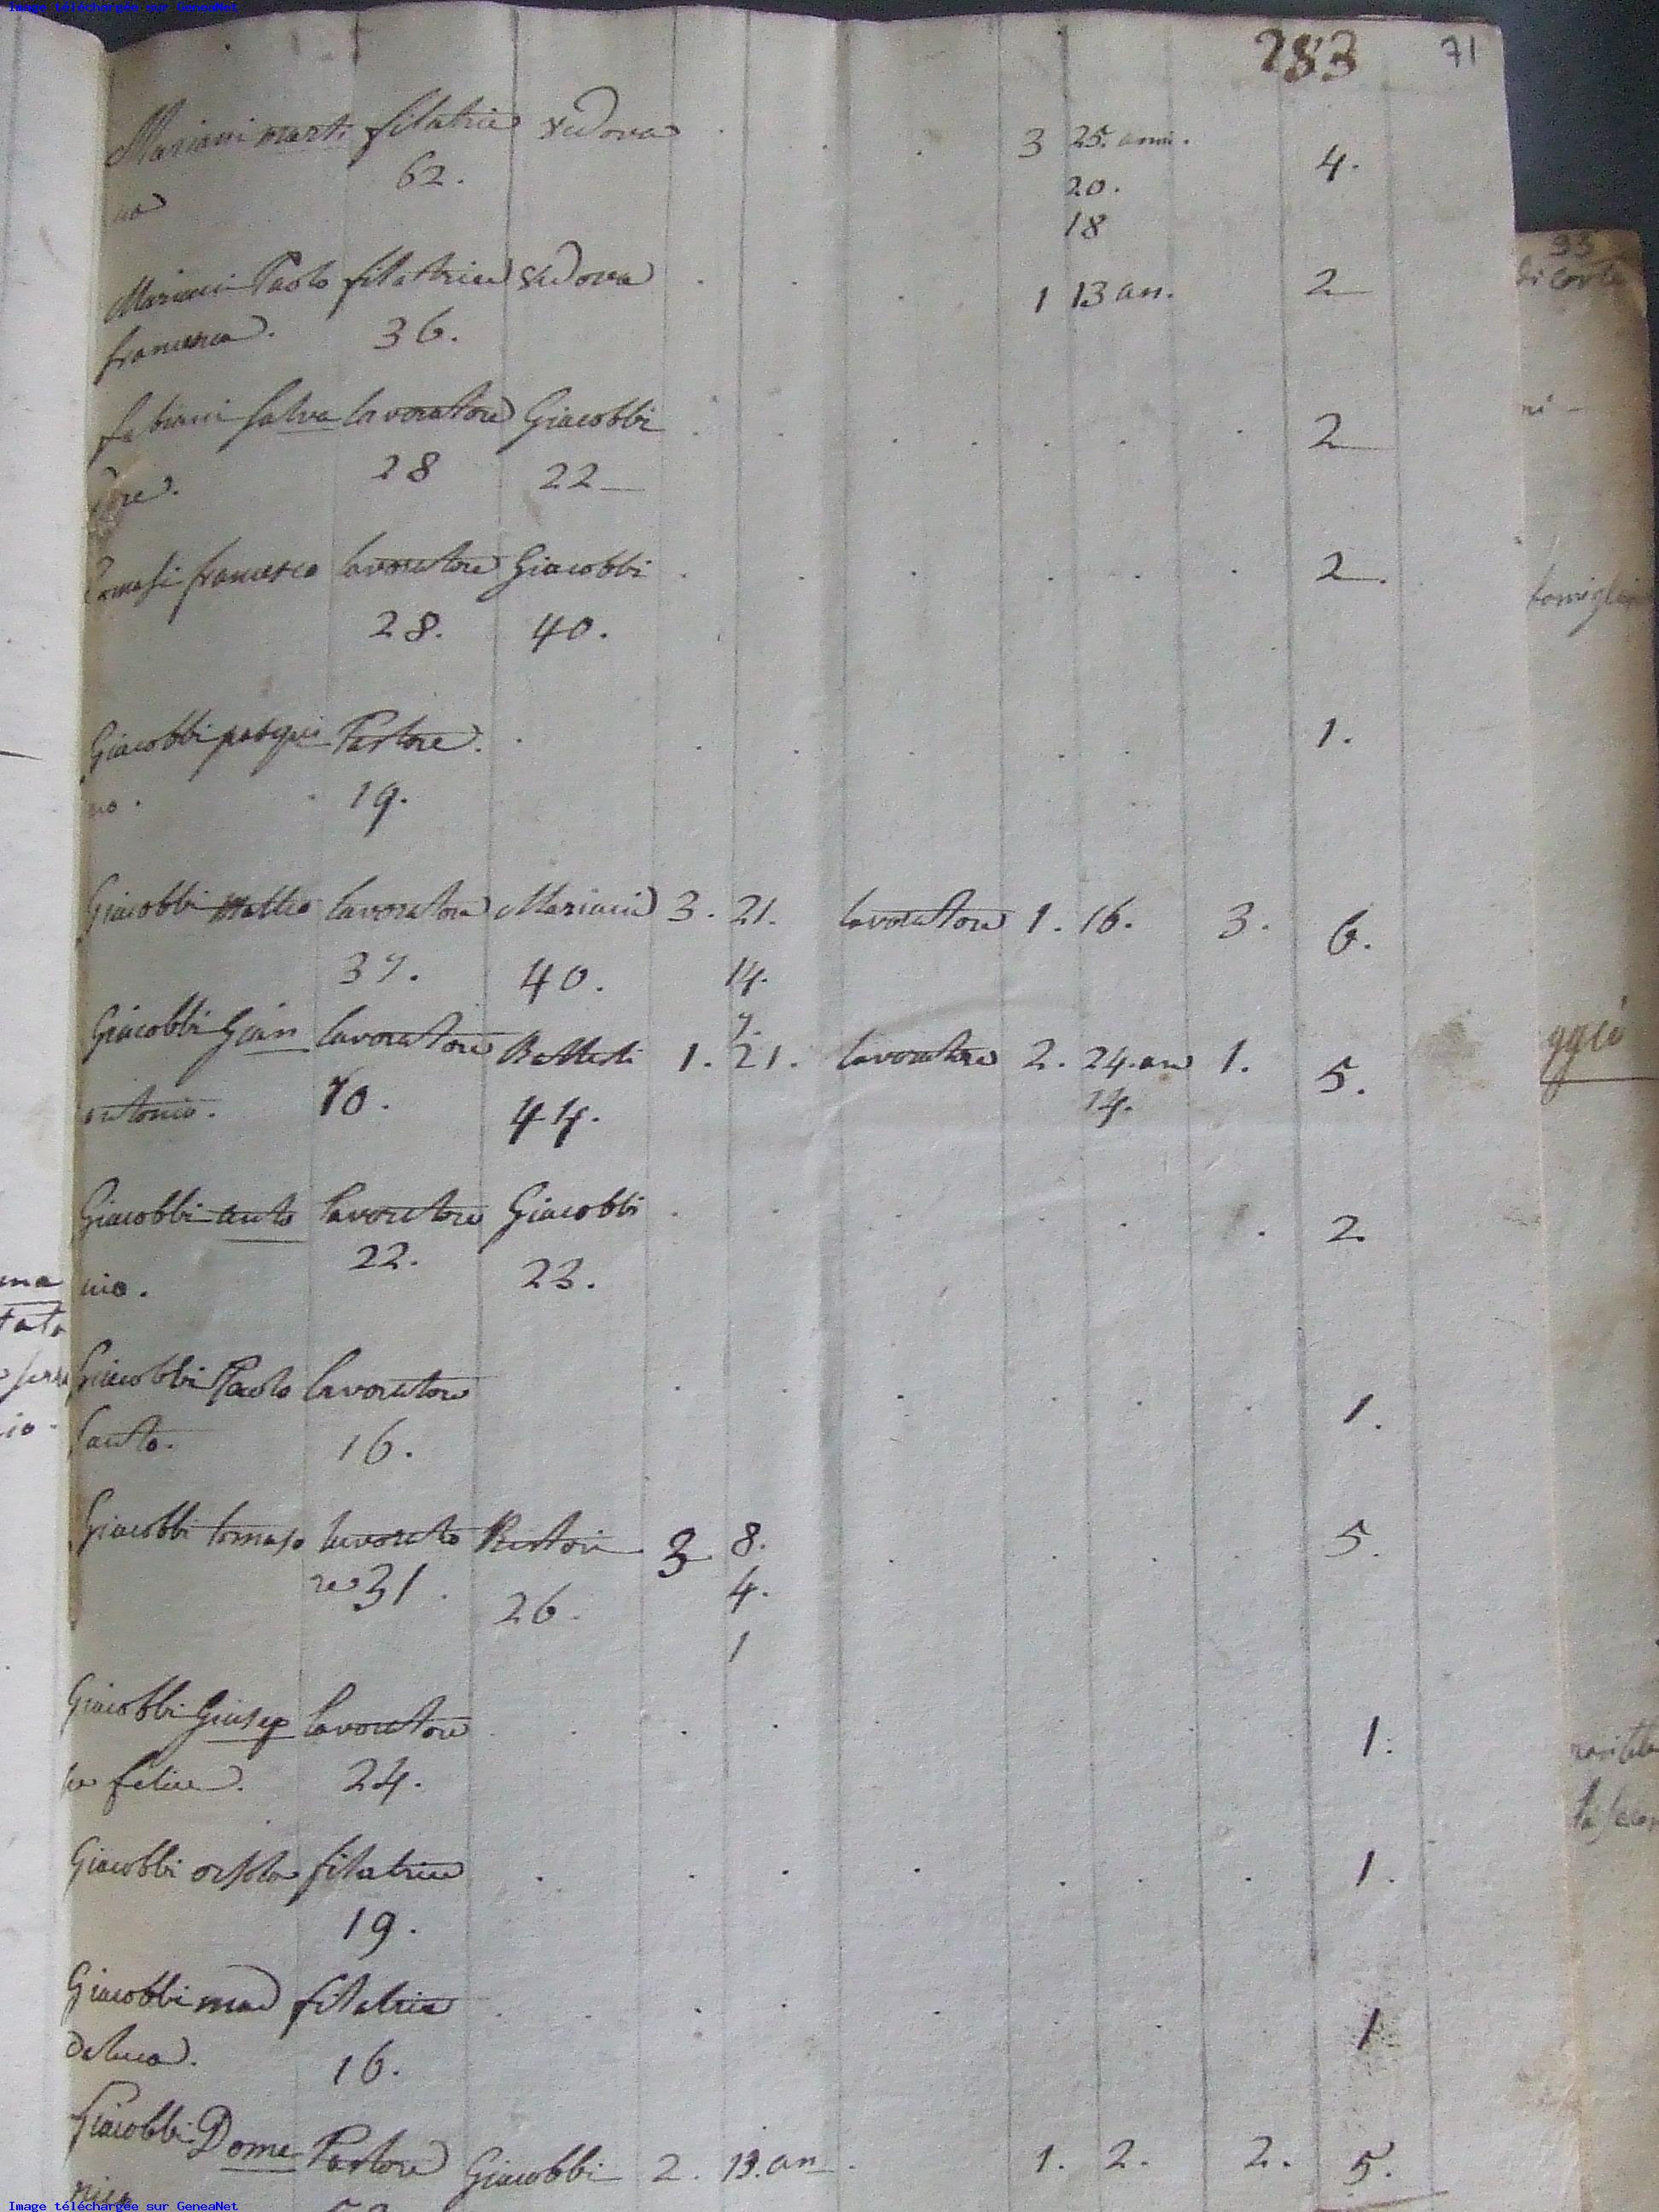 Image téléchargée sur GeneaNet
283 71
Mariani marti filatrice vedova 3 25. anni. 4.
na 62. 20.
18
Mariani Paolo filatrice vedova 1 13 an. 2
francesca. 36.
fabiani salva lavoratore Giacobbi 2
dore. 28 22
Tomasi francesco lavoratore Giacobbi 2.
28. 40.
Giacobbi pasqui Pastore. 1.
no. 19.
Giacobbi Matteo lavoratore Mariani 3. 21. lavoratore 1. 16. 3. 6.
37. 40. 14.
7.
Giacobbi Gian lavoratore Battesti 1. 21. lavoratore 2. 24. an 1. 5.
antonio. 70. 44. 14.
Giacobbi anto lavoratore Giacobbi 2.
nio. 22. 23.
Giacobbi Paolo lavoratore 1.
santo. 16.
Giacobbi tomaso lavorato 3 8. 5.
re 31. 26. 4.
1
Giacobbi Giusep lavoratore 1.
pe felice. 24.
Giacobbi orsola filatrice 1.
19.
Giacobbi mad filatrice 1
daluca. 16.
Giacobbi Dome Pastore Giacobbi 2. 13. an 1. 2. 2. 5.
nico
93
di corte
ni
famiglia
Image téléchargée sur GeneaNet